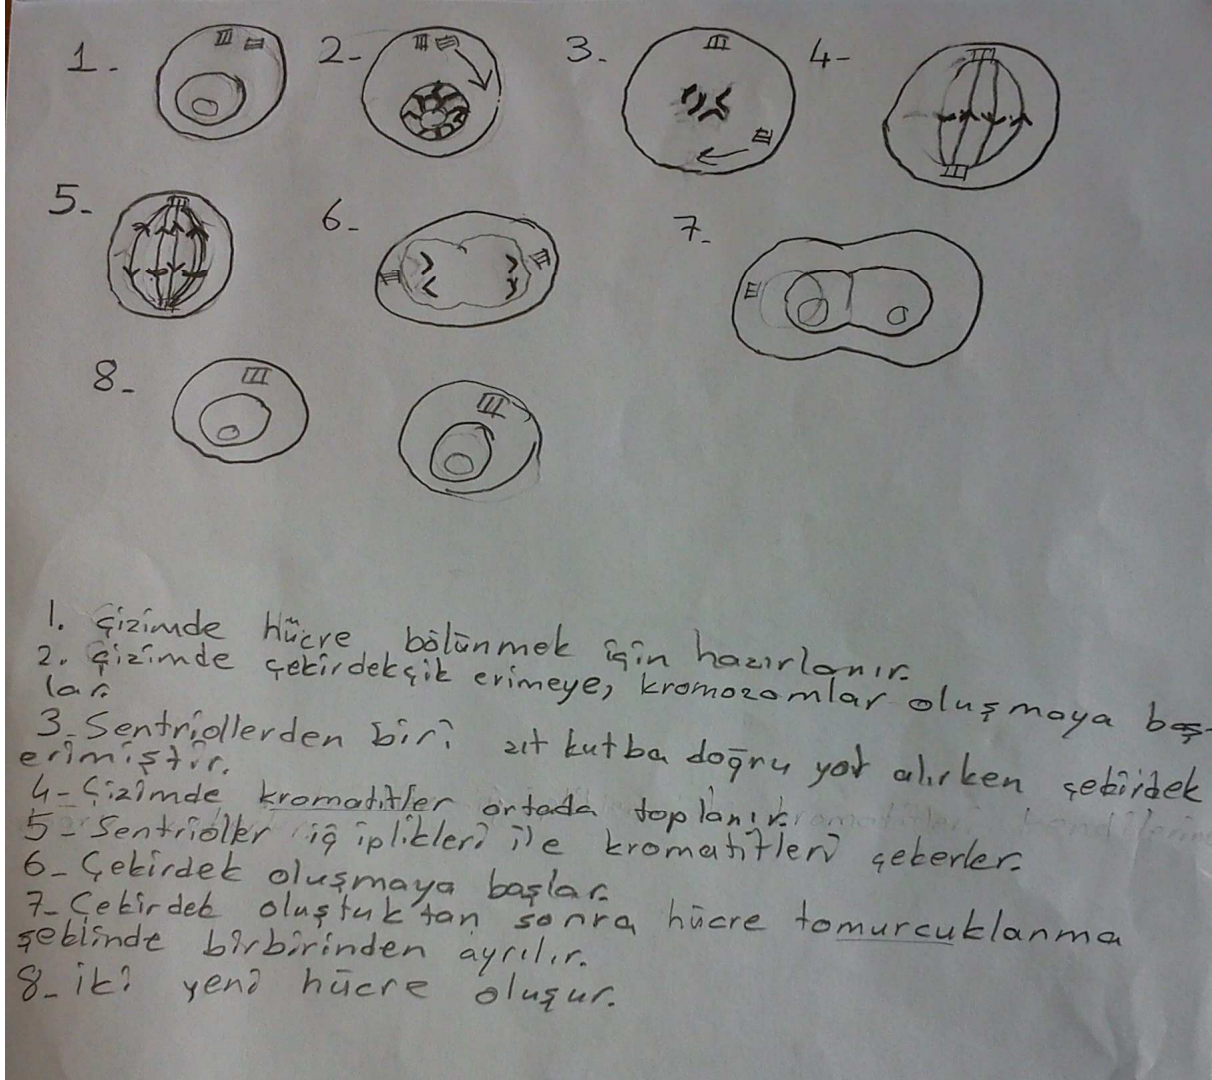 1.
2-
3.
4-
5-
6-
7-
8-
1. Çizimde Hücre bölünmek için hazırlanır.
2. Çizimde çekirdekçik erimeye, kromozomlar oluşmaya baş-
lar.
3-Sentriollerden biri zıt kutba doğru yol alırken çekirdek
erimiştir.
4-Çizimde kromatitler ortada toplanır.
5-Sentrioller iğ iplikleri ile kromatitleri çekerler.
6-Çekirdek oluşmaya başlar.
7-Çekirdek oluştuktan sonra hücre tomurcuklanma
şeklinde birbirinden ayrılır.
8-iki yeni hücre oluşur.